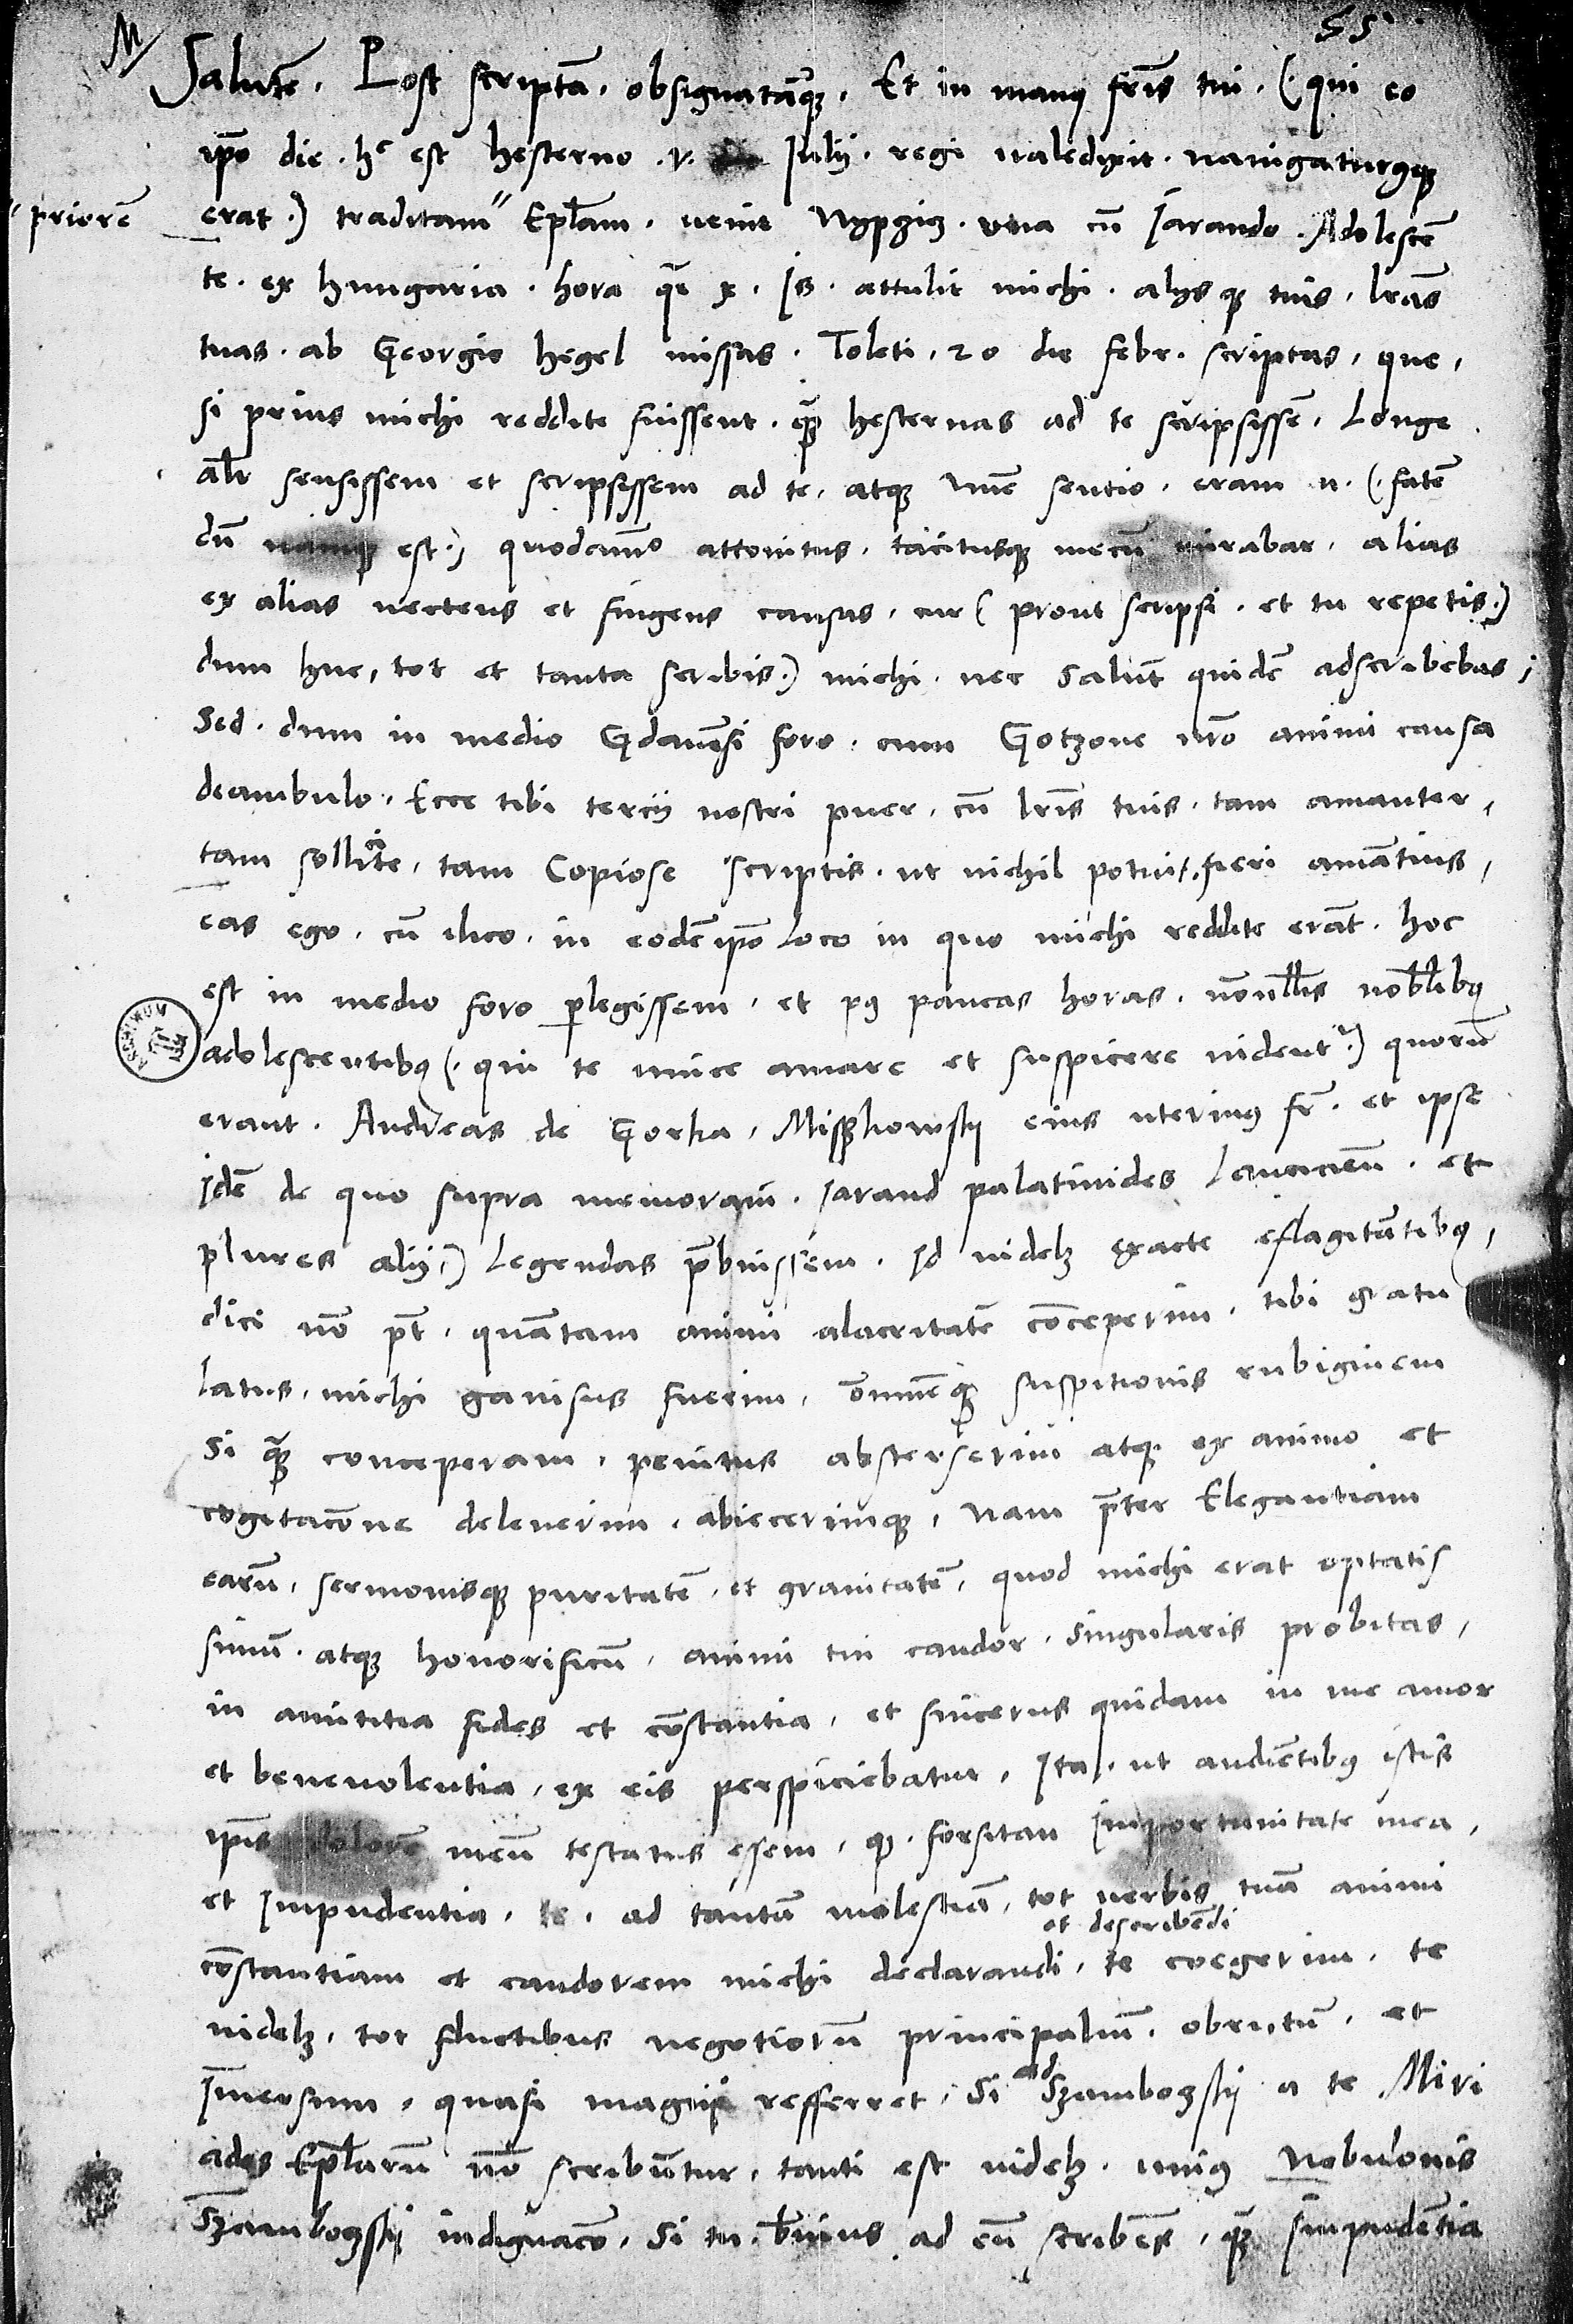 55
M Salutē. Post scriptā. obsignatāqȝ. Et in manꝰ frīs tui. (. qui eo
ip̄o die. hͨ est hesterno. v. Julij. regi ualedixit. nauigaturꝰqȝ
priorē
erat.) traditam" Ep̄lam. uenit Nypsicz. vna cū Jarando. Adolescē
te. ex hungaria. hora q̄i x. Is. attulit michi. alijsqȝ tuis. lr̄as
tuas. ab Georgio hegel missas. Toleti. 20 die febr. scriptas, que,
si prius michi reddite fuissent. qȝ̄ hesternas ad te scripsissē. Longe
alr̄ sensissem et scripsissem ad te, atqȝ nūc sentio. eram n. (. fatē
dū namqȝ est.) quodāmō attonitus, tacitusqȝ mecū mirabar, alias
ex alias uertens et fingens causas, cur (prout scripsi. et tu repetis.)
dum huc, tot et tanta scribis.) michi. nec Salutē quidē adscribebas;
Sed. dum in medio Gdanēsi foro. cum Gotzone nr̄o animi causa
deambulo. Ecce tibi tercij nostri puer, cū lr̄is tuis. tam amanter,
tam sollicite, tam Copiose scriptis. ut nichil potuit fieri amātius,
eas ego. cū ilico. in eodē ip̄o Loco in quo michi reddite erāt. hoc
est in medio foro perlegissem, et pꝰ paucas horas. nōnullis nobl̄ibꝰ
adolescentibꝰ (. qui te unice amare et suspicere uidentͬ.) quorū
erant. Andreas de Gorka, Mispkowsky eius uterinꝰ fr̄. et ipse
idē de quo supra memoraui. Jarand palatinides Lanciciēn. et
plures alij.) Legendas p̄buissem. id uidelȝ exacte efflagitātibꝰ,
dici nō pt̄. quantam animi alacritatē cōceperim. tibi gratu
latus, michi gauisus fuerim, ōmnēqȝ suspitionis rubiginem
Si qȝ̄ conceperam, penitus absterserim atqȝ ex animo et
cogitacōne deleuerim. abiecerimqȝ, Nam p̄ter Elegantiam
earū, sermonisqȝ puritatē. et grauitatē, quod michi erat optatis
simū. atqȝ honorificū, animi tui candor. Singularis probitas,
in amititia fides et cōstantia, et sincerus quidam in me amor
et beneuolentia, ex eis perspiciebatur, Ita. ut audiētibꝰ istis
ip̄is dolorē meū testatus essem, qȝ. forsitan Importunitate mea,
et Impudentia, te. ad tantā molestiā, tot uerbis tuā animi
et describēdi
cōstantiam et candorem michi declarandi, te coegerim. te
uidelȝ, tot fluctibus negotiorū principaliū. obrutū. et
Im̄ersum, quasi magni refferret, Si ad Szambogsky a te Miri
ades Ep̄larū nō scribūtur, tanti est uidelȝ. uniꝰ Nebulonis
Szambogsky indignacō, Si tu. b̄uius ad eū scribes, qȝ̄ Impudētia